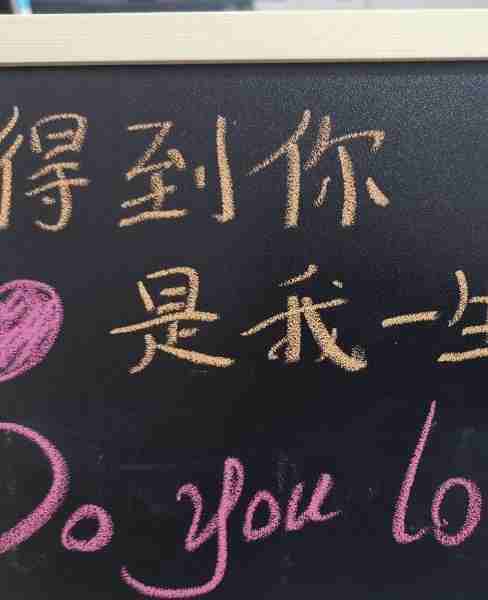 得到你
是我一生
Do you lo